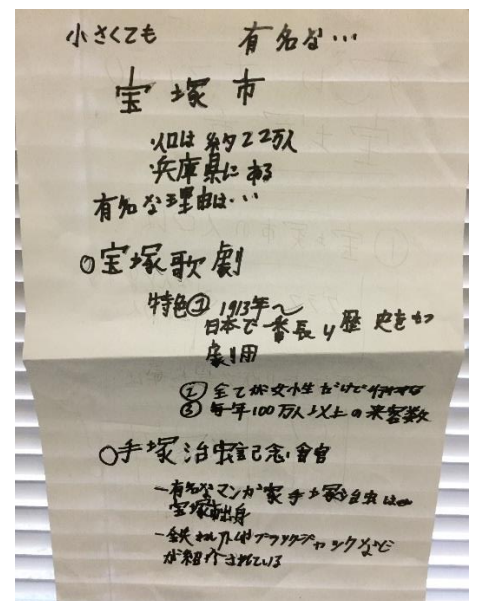 小さくても 有名な…
宝塚市
人口は約22万人
兵庫県にある
有名な理由は…
○宝塚歌劇
特色① 1913年〜
日本で一番長い歴史をもつ
劇団
② 全てが女性だけで行する
③ 毎年100万人以上の来客数
○手塚治虫記念館
-有名なマンガ家手塚治虫は
宝塚市出身
-鉄わん カやブラックジャックなど
が紹介されている